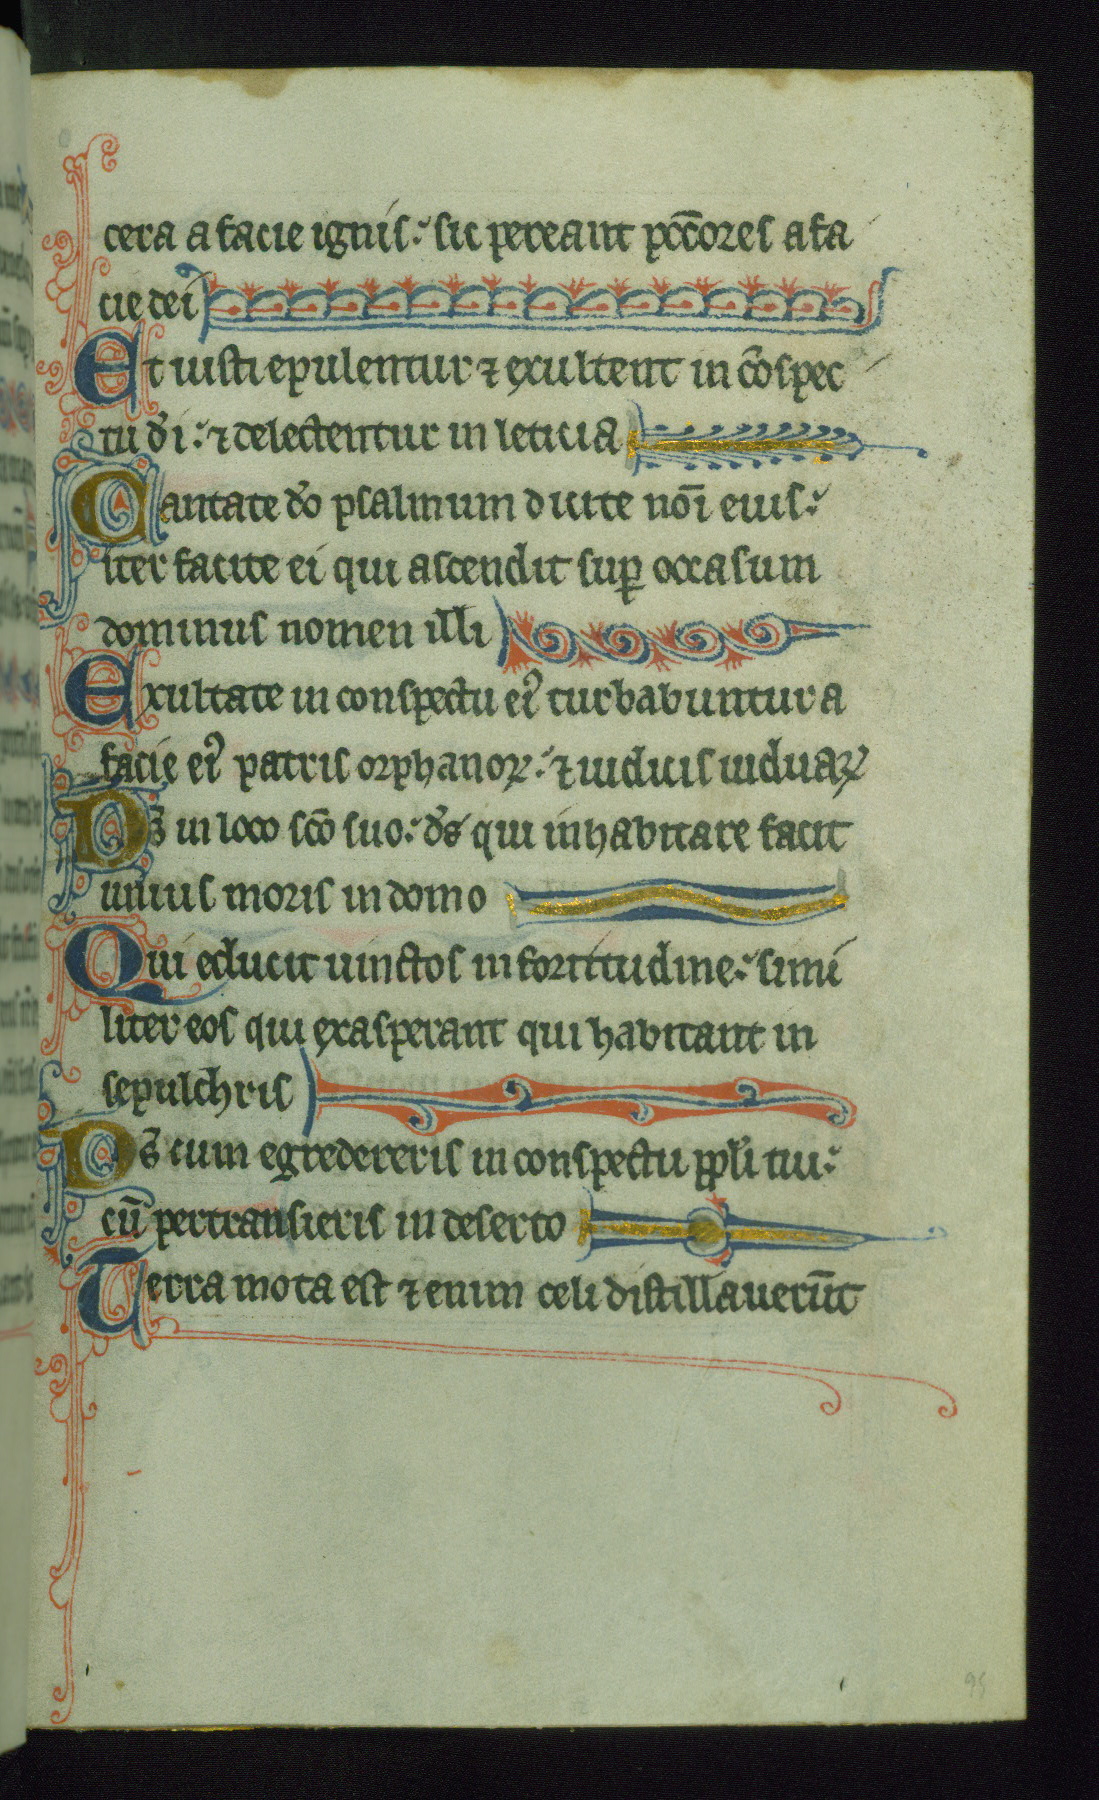 cera a facie ignis: sic pereant pccores a fa
cie dei
Et iusti epulentur ⁊ exultent in cōspec
tu dī: ⁊ delectentur in leticia
Cantate dō psalmum dicite noī eius:
iter facite ei qui ascendit suꝑ occasum
dominus nomen illi
Exultate in conspectu eiꝰ turbabuntur a
facie eiꝰ patris orphanoꝝ: ⁊ iudicis uiduaꝝ
Ds̄ in loco scō suo: ds̄ qui inhabitare facit
unius moris in domo
Qui educit uinctos in fortitudine: simi
liter eos qui exasperant qui habitant in
sepulchris
Ds̄ cum egredereris in conspectu ppl̄i tui:
cū pertransieris in deserto
Terra mota est ⁊ enim celi distillauerūt
95